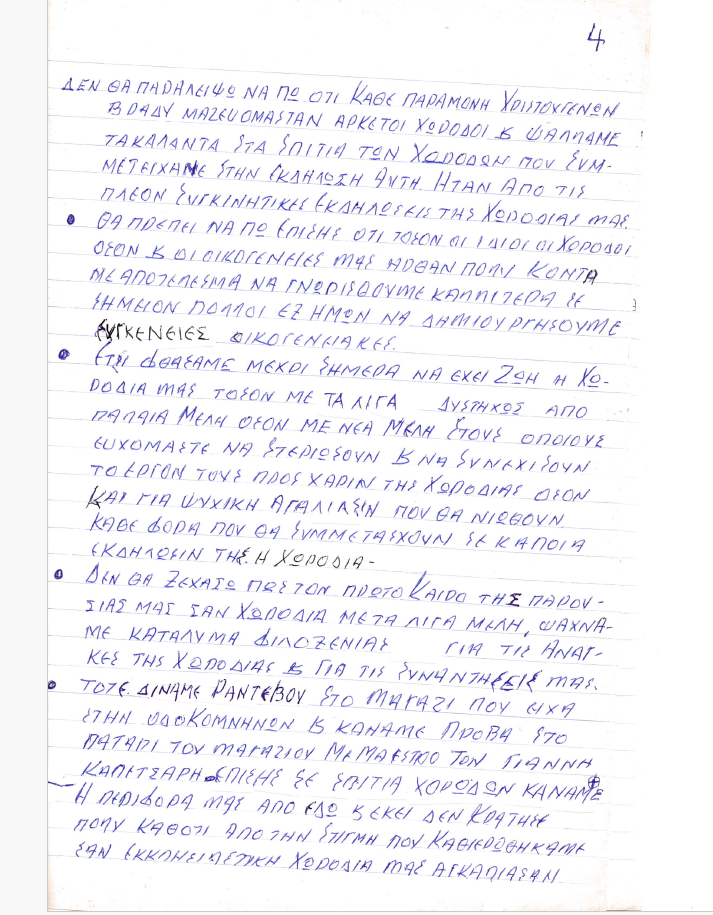 4
ΔΕΝ ΘΑ ΠΑΡΑΛΕΙΨΩ ΝΑ ΠΩ ΟΤΙ ΚΑΘΕ ΠΑΡΑΜΟΝΗ ΧΡΙΣΤΟΥΓΕΝΩΝ
ΒΡΑΔΥ ΜΑΖΕΥΟΜΑΣΤΑΝ ΑΡΚΕΤΟΙ ΧΩΡΟΔΟΙ & ΨΑΛΛΑΜΕ
ΤΑ ΚΑΛΑΝΤΑ ΣΤΑ ΣΠΙΤΙΑ ΤΩΝ ΧΩΡΟΔΩΝ ΠΟΥ ΣΥΜ-
ΜΕΤΕΙΧΑΝΕ ΣΤΗΝ ΕΚΔΗΛΩΣΗ ΑΥΤΗ. ΗΤΑΝ ΑΠΟ ΤΙΣ
ΠΛΕΟΝ ΣΥΓΚΙΝΗΤΙΚΕΣ ΕΚΔΗΛΩΣΕΙΣ ΤΗΣ ΧΩΡΟΔΙΑΣ ΜΑΣ.
• ΘΑ ΠΡΕΠΕΙ ΝΑ ΠΩ ΕΠΙΣΗΣ ΟΤΙ ΤΟΣΟΝ ΟΙ ΙΔΙΟΙ ΟΙ ΧΟΡΟΔΟΙ
ΟΣΟΝ & ΟΙ ΟΙΚΟΓΕΝΕΙΕΣ ΜΑΣ ΗΡΘΑΝ ΠΟΛΥ ΚΟΝΤΑ
ΜΕ ΑΠΟΤΕΛΕΣΜΑ ΝΑ ΓΝΩΡΙΣΘΟΥΜΕ ΚΑΛΛΙΤΕΡΑ ΣΕ
ΣΗΜΕΙΟΝ ΠΟΛΛΟΙ ΕΞ ΗΜΩΝ ΝΑ ΔΗΜΙΟΥΡΓΗΣΟΥΜΕ
ΣΥΓΚΕΝΕΙΕΣ ΟΙΚΟΓΕΝΕΙΑΚΕΣ.
• ΕΤΣΙ ΦΘΑΣΑΜΕ ΜΕΧΡΙ ΣΗΜΕΡΑ ΝΑ ΕΧΕΙ ΖΩΗ Η ΧΩ-
ΡΟΔΙΑ ΜΑΣ ΤΟΣΟΝ ΜΕ ΤΑ ΛΙΓΑ ΔΥΣΤΗΧΩΣ ΑΠΟ
ΠΑΛΑΙΑ ΜΕΛΗ ΟΣΟΝ ΜΕ ΝΕΑ ΜΕΛΗ ΣΤΟΥΣ ΟΠΟΙΟΥΣ
ΕΥΧΟΜΑΣΤΕ ΝΑ ΣΤΕΡΙΩΣΟΥΝ & ΝΑ ΣΥΝΕΧΙΣΟΥΝ
ΤΟ ΕΡΓΟΝ ΤΟΥΣ ΠΡΟΣ ΧΑΡΙΝ ΤΗΣ ΧΩΡΟΔΙΑΣ ΟΣΟΝ
ΚΑΙ ΓΙΑ ΨΥΧΙΚΗ ΑΓΑΛΙΑΣΙΝ ΠΟΥ ΘΑ ΝΙΩΘΟΥΝ
ΚΑΘΕ ΦΟΡΑ ΠΟΥ ΘΑ ΣΥΜΜΕΤΑΣΧΟΥΝ ΣΕ ΚΑΠΟΙΑ
ΕΚΔΗΛΩΣΙΝ ΤΗΣ. Η ΧΩΡΟΔΙΑ-
• ΔΕΝ ΘΑ ΞΕΧΑΣΩ ΠΩΣ ΤΟΝ ΠΡΩΤΟ ΚΑΙΡΟ ΤΗΣ ΠΑΡΟΥ-
ΣΙΑΣ ΜΑΣ ΣΑΝ ΧΩΡΟΔΙΑ ΜΕ ΤΑ ΛΙΓΑ ΜΕΛΗ, ΨΑΧΝΑ-
ΜΕ ΚΑΤΑΛΥΜΑ ΦΙΛΟΞΕΝΙΑΣ ΓΙΑ ΤΙΣ ΑΝΑΓ-
ΚΕΣ ΤΗΣ ΧΩΡΟΔΙΑΣ & ΓΙΑ ΤΙΣ ΣΥΝΑΝΤΗΣΕΙΣ ΜΑΣ.
• ΤΟΤΕ ΔΙΝΑΜΕ ΡΑΝΤΕΒΟΥ ΣΤΟ ΜΑΓΑΖΙ ΠΟΥ ΕΙΧΑ
ΣΤΗΝ ΟΔΟ ΚΟΜΝΗΝΩΝ & ΚΑΝΑΜΕ ΠΡΟΒΑ ΣΤΟ
ΠΑΤΑΡΙ ΤΟΥ ΜΑΓΑΖΙΟΥ ΜΕ ΜΑΕΣΤΡΟ ΤΟΝ ΓΙΑΝΝΗ
ΚΑΠΕΤΣΑΡΗ ΕΠΙΣΗΣ ΣΕ ΣΠΙΤΙΑ ΧΟΡΟΔΩΝ ΚΑΝΑΜΕ
Η ΠΕΡΙΦΟΡΑ ΜΑΣ ΑΠΟ ΕΔΩ & ΕΚΕΙ ΔΕΝ ΚΡΑΤΗΣΕ
ΠΟΛΥ ΚΑΘΟΤΙ ΑΠΟ ΤΗΝ ΣΤΙΓΜΗ ΠΟΥ ΚΑΘΙΕΡΩΘΗΚΑΜΕ
ΣΑΝ ΕΚΚΛΗΣΙΑΣΤΙΚΗ ΧΩΡΟΔΙΑ ΜΑΣ ΑΓΚΑΛΙΑΣΑΝ